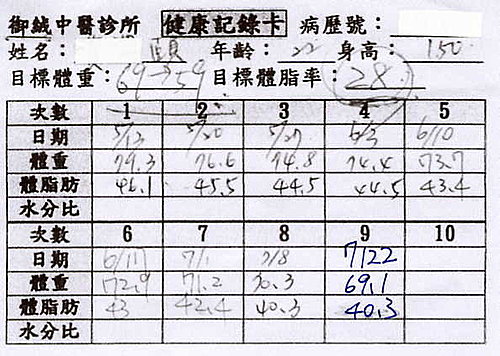 御絨中醫診所 健康記錄卡 病歷號：
姓名： 頤 年齡：22 身高：150
目標體重：69→59 目標體脂率：28%
次數 1 2 3 4 5
日期 5/13 5/20 5/27 6/3 6/10
體重 79.3 76.6 74.8 74.4 73.7
體脂肪 46.1 45.5 44.5 44.5 43.4
水分比
次數 6 7 8 9 10
日期 6/17 7/1 7/8 7/22
體重 72.9 71.2 70.3 69.1
體脂肪 43 42.4 40.3 40.3
水分比